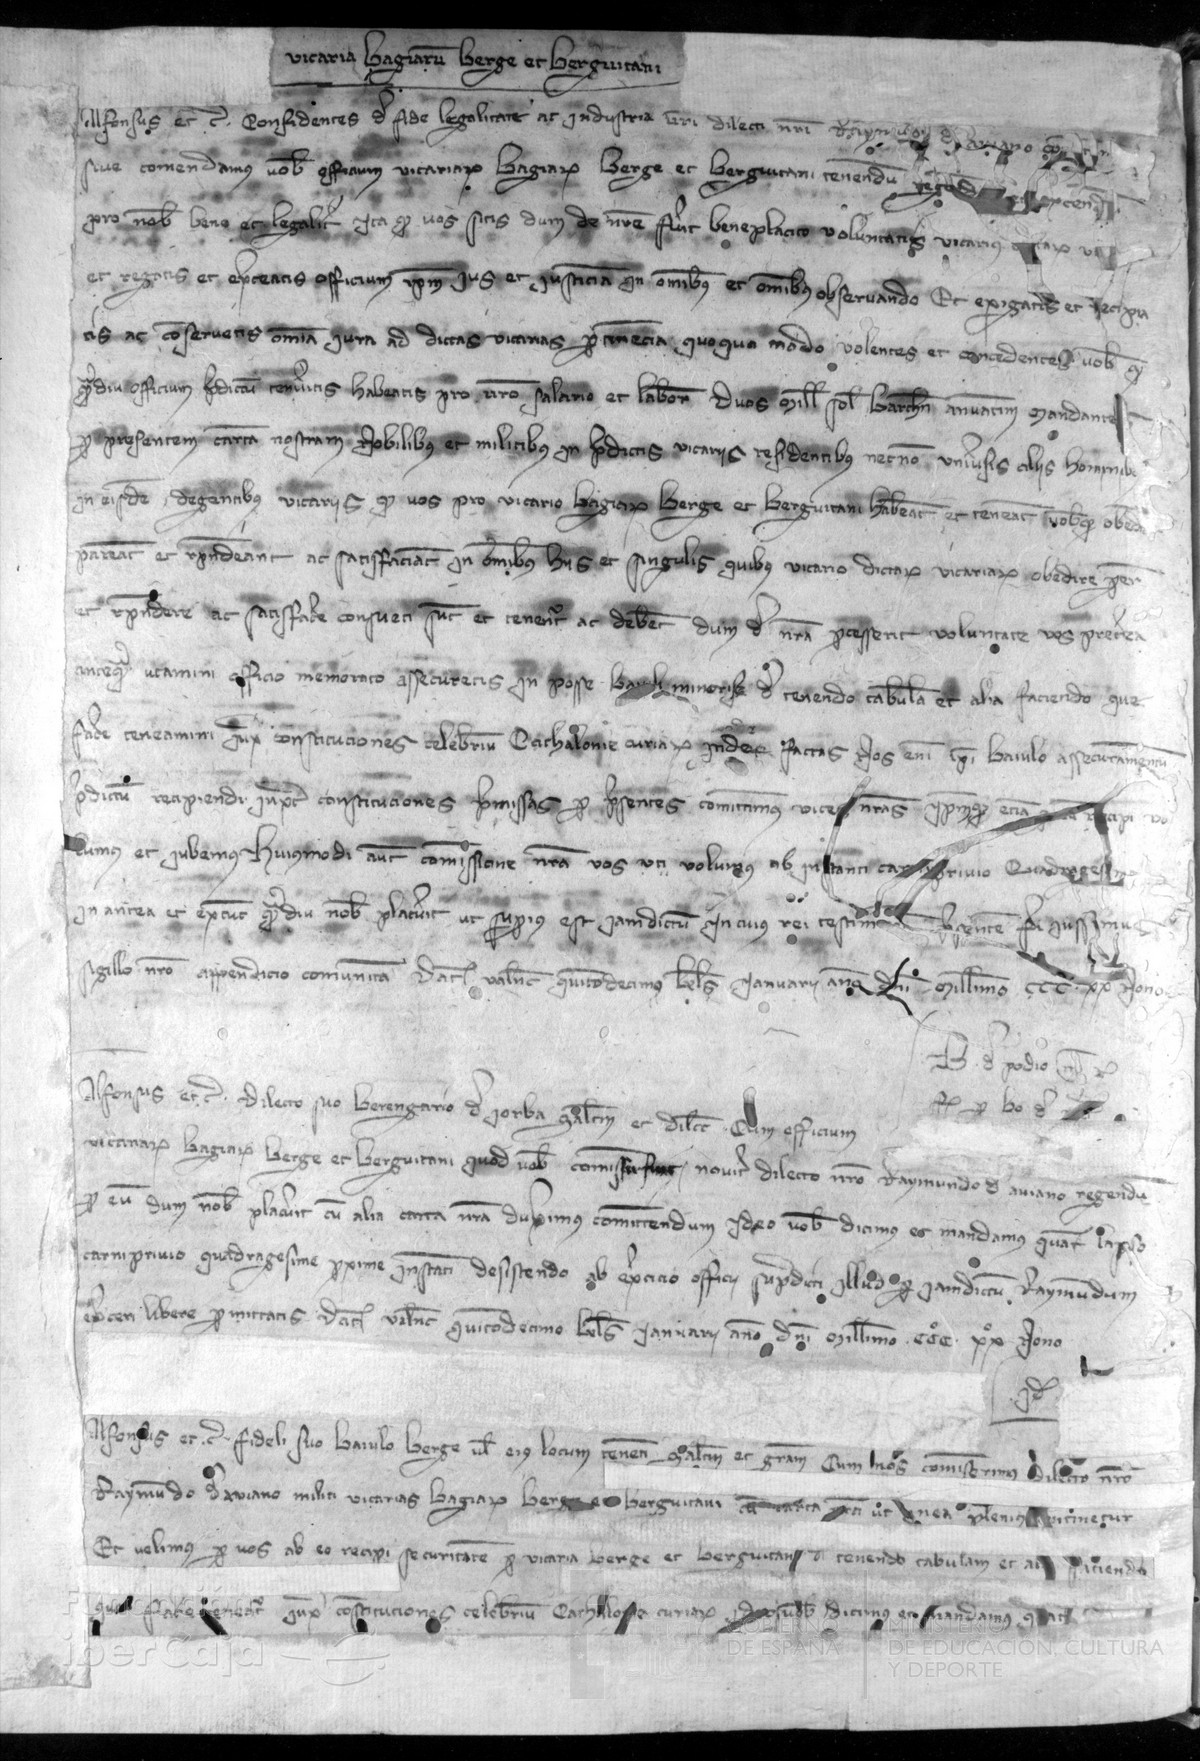 vicaria Bagiarũ Berge et Berguitani
Alfonsus et c̃. Confidentes đ fide legalitate ac industria ur̃i dilecti nr̃i Raymundi đ Aviano
sive comendamus vob̃ officium vicariaꝝ Bagiaꝝ Berge et Berguitani tenendũ regend
pro nob̃ bene et legalit̃ Ita ꝙ vos sitis dum de nr̃e fũit beneplacito voluntatis vicarius
et regatis et ex̃ceatis officium ip̃m ius et iusticia in om̃ibus et om̃ibus observando Et exigatis et recipia
tis ac cõservetis om̃ia iura ad dictas vicarias ꝑtinẽcia quoquo modo volentes et concedentes vob̃ ꝙ
qm̃diu officium p̃dictũ tenũitis habeatis pro ur̃o salario et labor̃ Duos mill̃ sol̃ Barch̃n annuatim mandantes
ꝑ presentem cartã nostram Nobilibus et militibus in p̃dictis vicariis residentibus necnõ uniṽsis aliis hominibus
in eisdẽ degentibus vicariis ꝙ vos pro vicario Bagiaꝝ Berge et Berguitani habeãt et teneãt vobisꝙ obed
pareãt et rñdeant ac satisfaciãt in om̃ibus hiis et singulis quibus vicario dictaꝝ vicariaꝝ obedire
et rñdere ac satisfac̃e consueti sũt et tenent̃ ac debẽt dum đ nr̃a ꝓcesserit voluntate vos pret̃ea
anteq̃ utamini officio memorato assecuretis in posse baiuli minorise đ tenendo tabulã et alia faciendo que
fac̃e teneamini iux̃ constituciones celebriũ Cathalonie curiaꝝ inde factas Nos eni ip̃i Baiulo assecuramentũ
p̃dictũ recipiendi iux̃ constituciones p̃missas ꝑ p̃sentes comittimus vices nr̃as ip̃mꝙ etiã recipi vo
lumus et iubemus Huiusmodi aut̃ comissione nr̃a vos uti volumus ab instanti carniprivio Quadragesime
in antea et ex tũc qm̃diu nob̃ placũit ut sup̃ius est iamdictũ In cuius rei testim p̃sentẽ fi iussimus
sigillo nr̃o appendicio comunitã Dat̃ Valñc quintodecimo kl̃s Januarii año dñi Mill̃imo CCC xx Nono
B. đ podio
F̃ ꝑ Bo đ
Alfonsus et c̃. Dilecto suo Berengario đ Iorba Sal̃tm et dil̃cc Cum officium
vicariaꝝ Bagiaꝝ Berge et Berguitani quod vob̃ comissum fuit novit̃ dilecto nr̃o Raymundo đ aviano regendũ
ꝑ eũ dum nob̃ placũit cũ alia carta nr̃a duximus comittendum Ideo vob̃ dicimus et mandamus quat̃ lapso
carniprivio quadragesime ꝓxime instãti desistendo ab ex̃cicio officii sup̃dc̃i illud ꝑ iamdictũ Raymundum
ex̃ceri libere ꝑmittatis Dat̃ Valñc quintodecimo kl̃s Januarii año dñi Mill̃imo CCC xx Nono
Id̃
Alfonsus et c̃. Fideli suo Baiulo Berge vl̃ eius locum tenenti Sal̃tm et gram Cum nos comiserimus Dilecto nr̃o
Raymũdo đ Aviano militi vicarias Bagiaꝝ Berge et Berguitani cũ carta nr̃a ut in ea plenius continetur
Et velimus ꝑ vos ab eo recipi securitatẽ ꝑ vicaria Berge et Berguitani đ tenendo tabulam et alia faciendo
que fac̃e teneat̃ iux̃ cõstituciones celebriũ Cathalonie curiaꝝ ideo vob̃ dicimus et mandamus quat
Fundación
iberCaja
GOBIERNO
DE ESPAÑA
MINISTERIO
DE EDUCACIÓN, CULTURA
Y DEPORTE